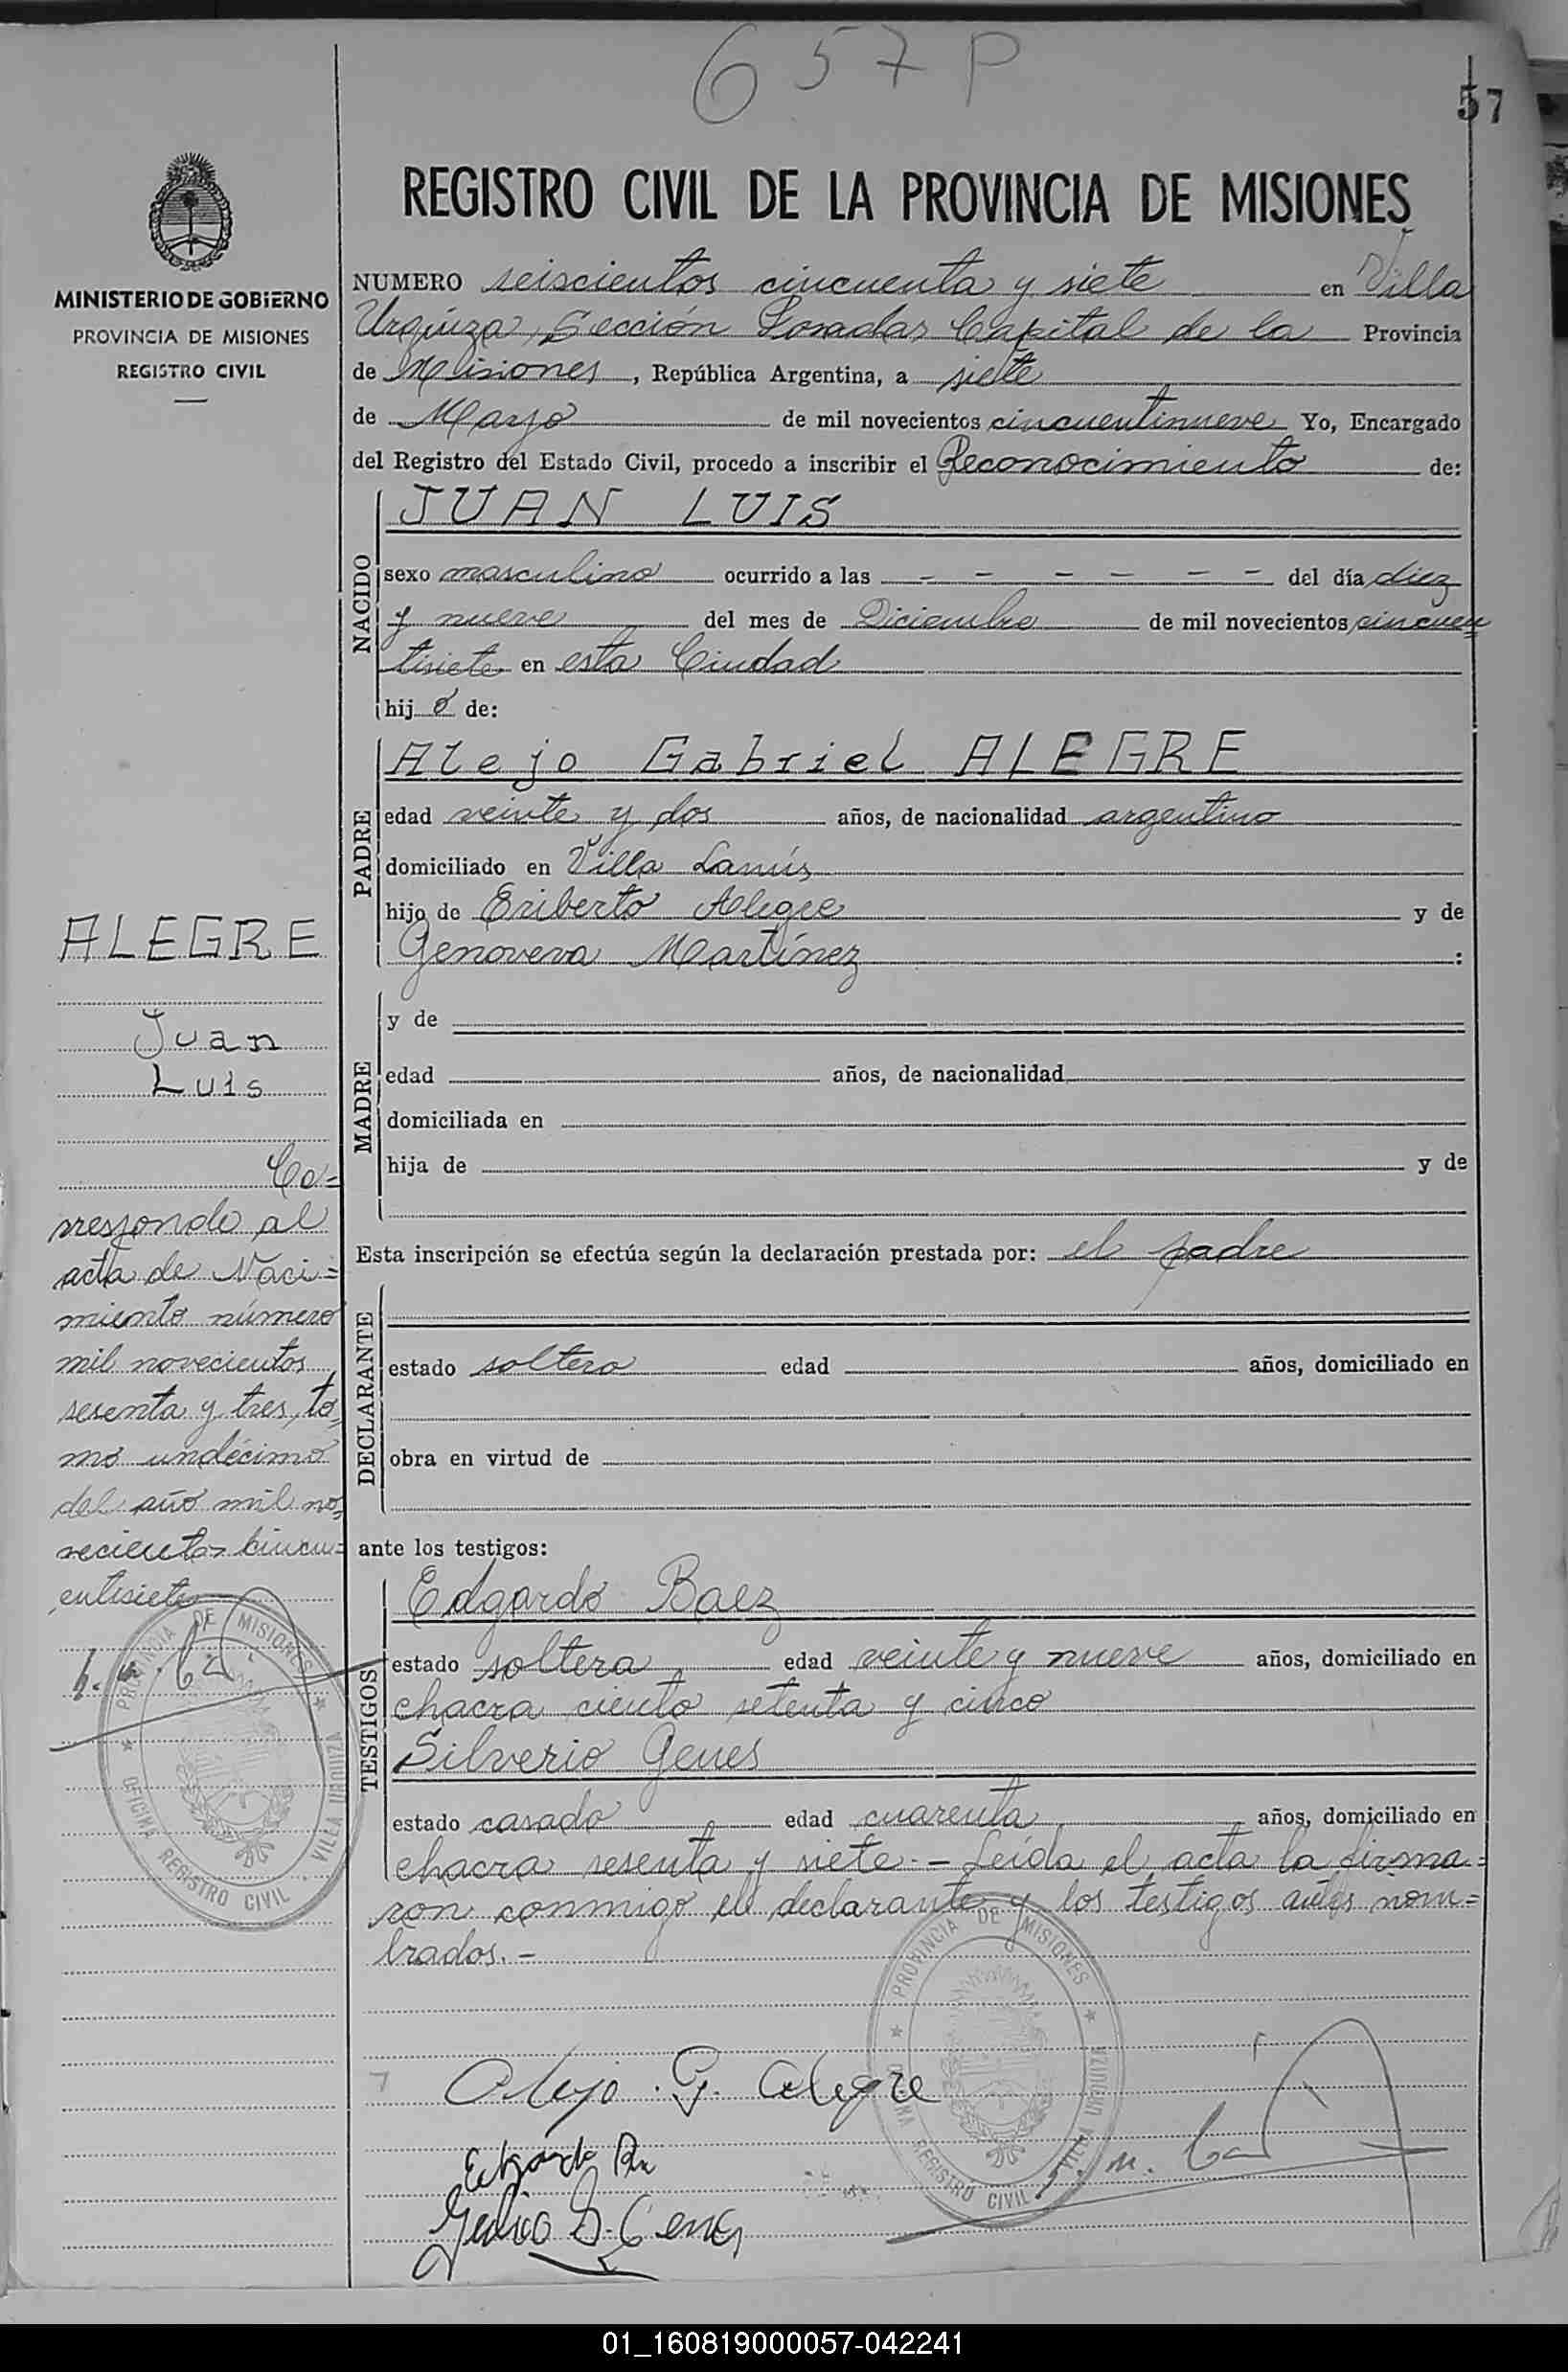 657 P
57
REGISTRO CIVIL DE LA PROVINCIA DE MISIONES
MINISTERIO DE GOBIERNO
PROVINCIA DE MISIONES
REGISTRO CIVIL
NUMERO seiscientos cincuenta y siete en Villa
Urquiza, Sección Posadas Capital de la Provincia
de Misiones, República Argentina, a siete
de Mayo de mil novecientos cincuentinueve Yo, Encargado
del Registro del Estado Civil, procedo a inscribir el Reconocimiento de:
NACIDO
JUAN LUIS
sexo masculino ocurrido a las - - - - - - del día diez
y nueve del mes de Diciembre de mil novecientos cincuen
tisiete en esta Ciudad
hijo de:
PADRE
Alejo Gabriel ALEGRE
edad veinte y dos años, de nacionalidad argentino
domiciliado en Villa Lanús
hijo de Eriberto Alegre y de
Genoveva Martínez :
MADRE
y de
edad años, de nacionalidad
domiciliada en
hija de y de
Esta inscripción se efectúa según la declaración prestada por: el padre
DECLARANTE
estado soltero edad años, domiciliado en
obra en virtud de
ante los testigos:
TESTIGOS
Edgardo Baez
estado soltera edad veinte y nueve años, domiciliado en
chacra ciento setenta y cinco
Silverio Genes
estado casado edad cuarenta años, domiciliado en
chacra sesenta y siete.- Leída el acta la firma=
ron conmigo el declarante y los testigos antes nom=
brados.-
ALEGRE
Juan
Luis
Co=
rresponde al
acta de Naci=
miento número
mil novecientos
sesenta y tres, to=
mo undécimo
del año mil no=
vecientos cincu=
entisiete
PROVINCIA DE MISIONES
OFICINA REGISTRO CIVIL
VILLA URQUIZA
Alejo G. Alegre
PROVINCIA DE MISIONES
OFICINA REGISTRO CIVIL
VILLA URQUIZA
Edgardo
01_160819000057-042241